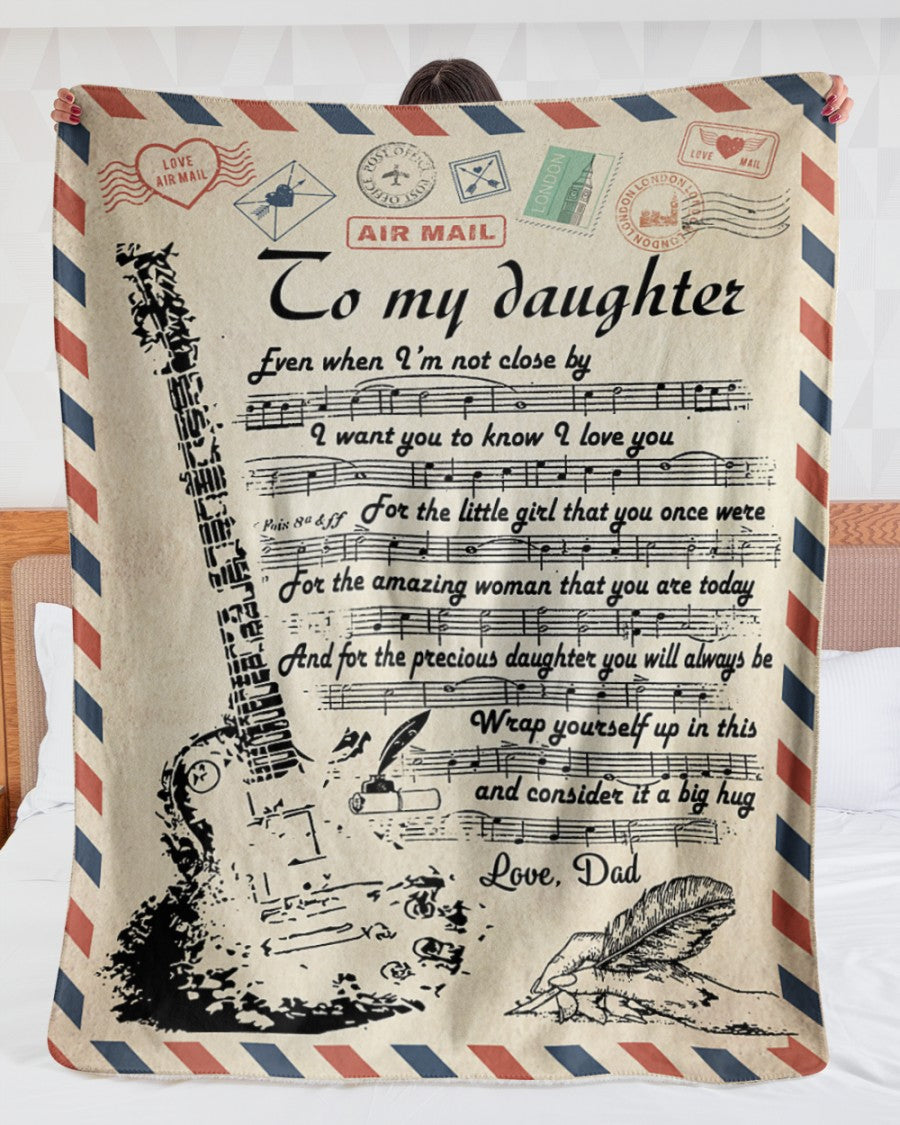 LOVE
AIR MAIL
POST OFFICE POST OFFICE
LONDON
LOVE MAIL
LONDON LONDON LONDON
AIR MAIL
To my daughter
Even when I'm not close by
I want you to know I love you
For the little girl that you once were
For the amazing woman that you are today
And for the precious daughter you will always be
Wrap yourself up in this
and consider it a big hug
Love, Dad